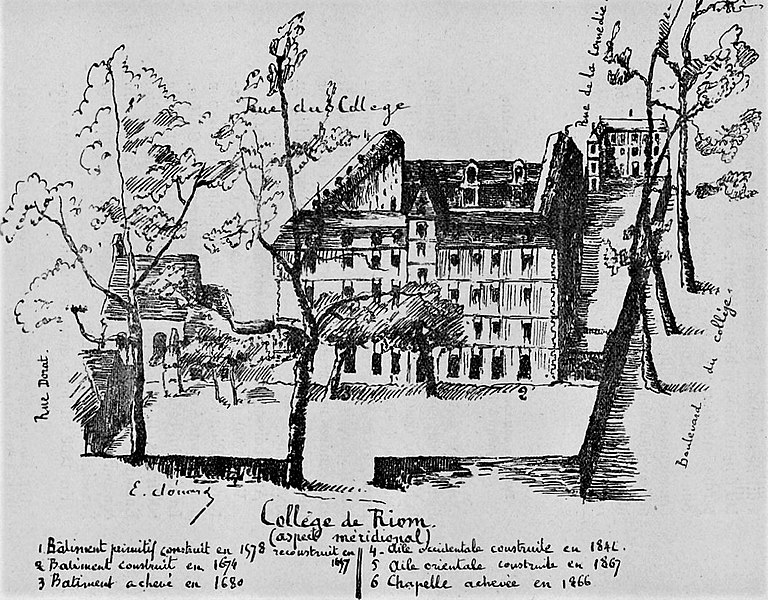 Rue de la Comédie.
Rue du College
Rue Dorat.
Boulevard du collège.
3
2
Collège de Riom.
(aspect méridional)
1. Bâtiment primitif construit en 1578 reconstruit en
2 Batiment construit en 1674
3 Batiment achevé en 1680
4 - Aile occidentale construite en
5 Aile orientale construite en 1867
6 Chapelle achevée en 1866